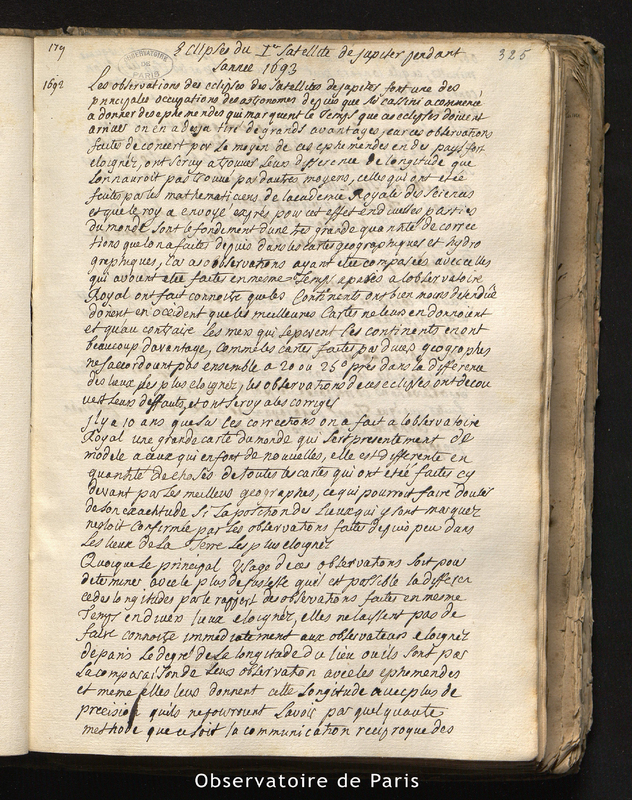 179
Eclipses du Ir Satellite de Jupiter pendant
325
l'année 1693
OBSERVATOIRE DE PARIS
1692
Les observations des eclipses des Satellites de jupiter sont une des
principales occupations des astronomes depuis que Mr cassini a commencé
a donner des ephemerides qui marquent le temps que ces eclipses doivent
arriver on en a deja tiré de grands avantages, car ces observations
faites de concert par le moyen de ces ephemerides en des pays fort
eloignez, ont servy a trouver leur difference de longitude que
lon nauroit pas trouvé par dautres moyens, celles qui ont eté
faites par les mathematiciens de lacademie Royale des sciences
et que le roy a envoyé exprés pour cet effet en diverses parties
du monde sont le fondement dune tres grande quantité de correc
tions que lon a faites depuis dans les cartes geographiques et hydro
graphiques, Car ces observations ayant eté comparées avec celles
qui avoient eté faites en mesme temps a paris a lobservatoire
Royal ont fait connoitre que les Continents ont bien moins detendüe
dorient en occident que les meilleures Cartes ne leur en donnoient
et quau contraire les mers qui separent les continents en ont
beaucoup davantage, comme les cartes faites par divers geographes
ne saccordoient pas ensemble a 20 ou 25° prés dans la difference
des lieux les plus eloignez, les observations de ces eclipses ont decou
vert leurs deffauts, et ont servy a les corriger
Il y a 10 ans que sur les corrections on a fait a lobservatoire
Royal une grande carte du monde qui sert presentement de
modele a ceux qui en font de nouvelles, elle est differente en
quantité de choses de toutes les cartes qui ont eté faites cy
devant par les meilleurs geographes, ce qui pourroit faire douter
de son exactitude si la position des lieux qui y sont marquez
netoit confirmée par les observations faites depuis peu dans
les lieux de la Terre les plus eloignez
Quoique le principal Usage de ces observations soit pour
determiner avec le plus de justesse quil est possible la differen
ce des longitudes par le rapport des observations faites en mesme
Temps en divers lieux eloignez, elles ne laissent pas de
faire connoitre immediatement aux observateurs eloignez
de paris le degré de longitude du lieu ou ils sont par
la comparaison de leurs observation avec les ephemerides
et meme elles leur donnent cette longitude avec plus de
precision quils ne pourroient savoir par quelquautre
methode que ce soit la communication reciproque des
Observatoire de Paris